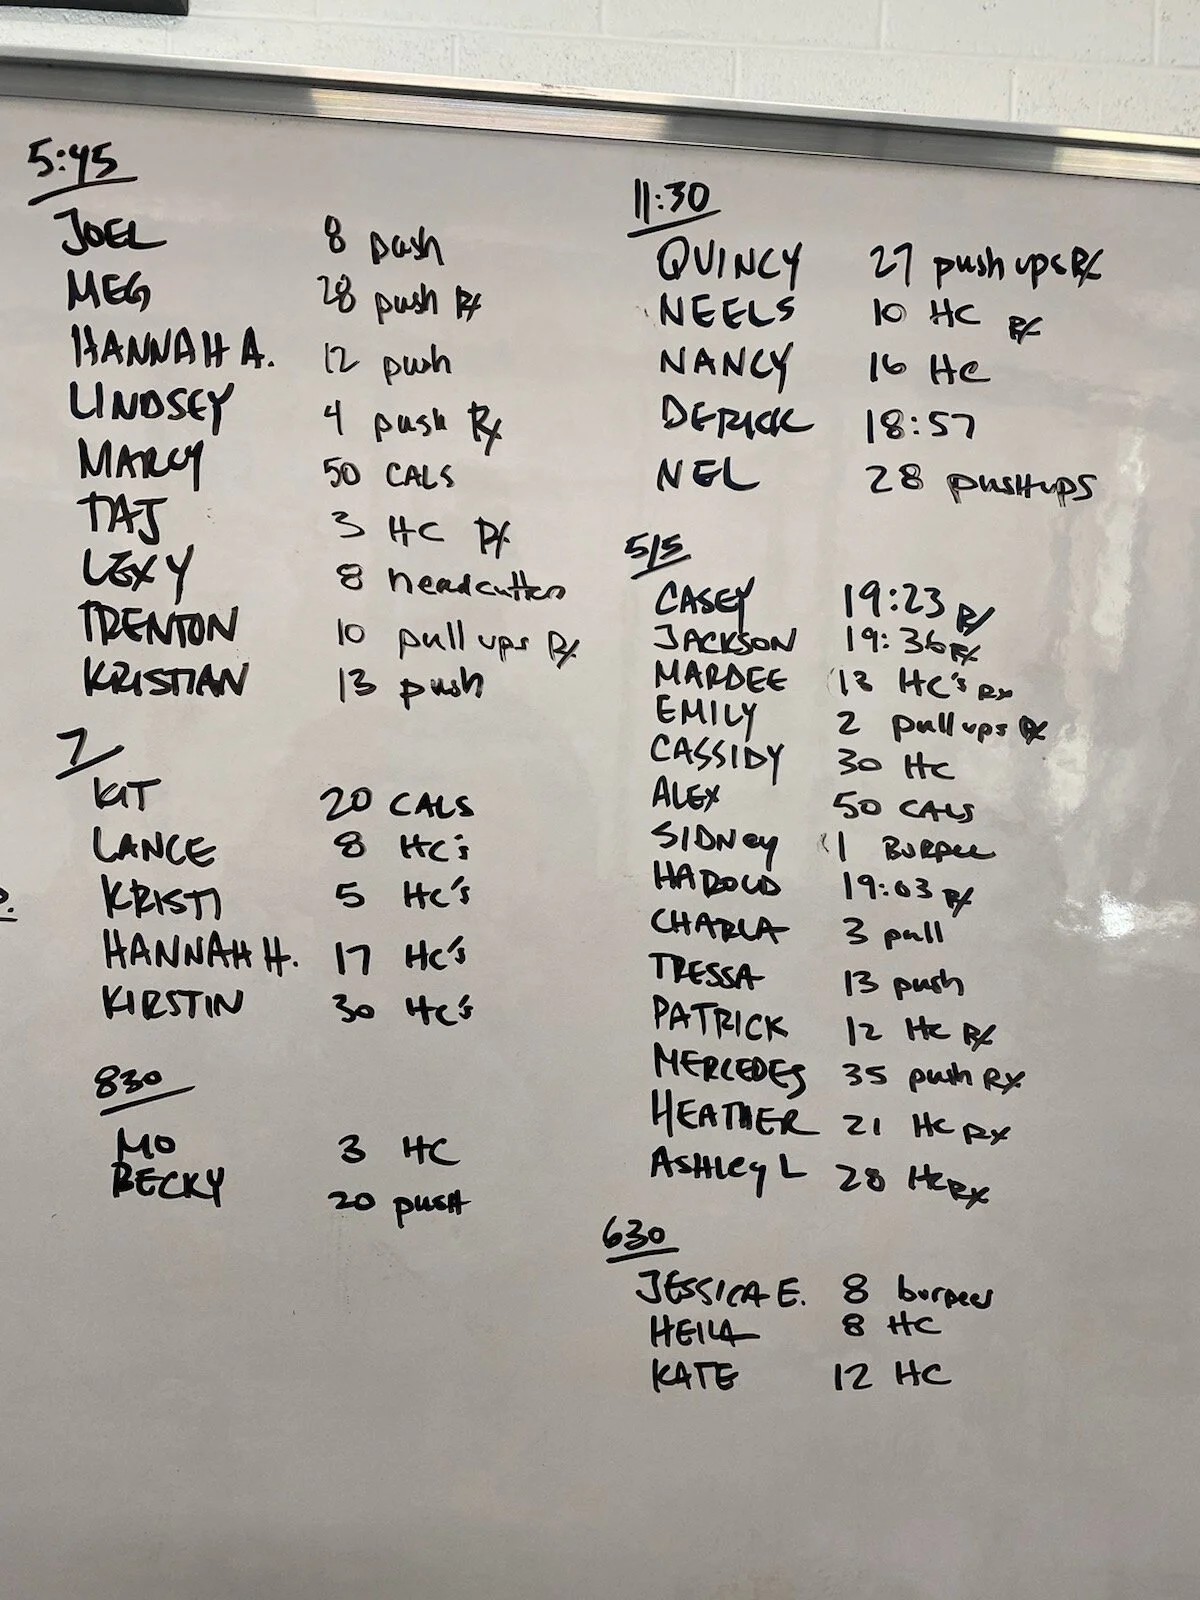 5:45
JOEL 8 push
MEG 28 push Rx
HANNAH A. 12 push
LINDSEY 4 push Rx
MARCY 50 CALS
TAJ 3 HC Rx
LEXY 8 headcutters
TRENTON 10 pull ups Rx
KRISTIAN 13 push
7
KIT 20 CALS
LANCE 8 HC's
KRISTI 5 HC's
HANNAH H. 17 HC's
KIRSTIN 30 HC's
830
MO 3 HC
BECKY 20 pusH
11:30
QUINCY 27 push ups Rx
NEELS 10 HC Rx
NANCY 16 HC
DERICK 18:57
NEL 28 pusHups
5/5
CASEY 19:23 Rx
JACKSON 19:36 Rx
MARDEE 13 HC's Rx
EMILY 2 pull ups Rx
CASSIDY 30 HC
ALEX 50 CALS
SIDNEY 1 BURPEE
HAROLD 19:03 Rx
CHARLA 3 pull
TRESSA 13 push
PATRICK 12 HC Rx
MERCEDES 35 push Rx
HEATHER 21 HC Rx
ASHLEY L 28 HC Rx
630
JESSICA E. 8 burpees
HEILA 8 HC
KATE 12 HC